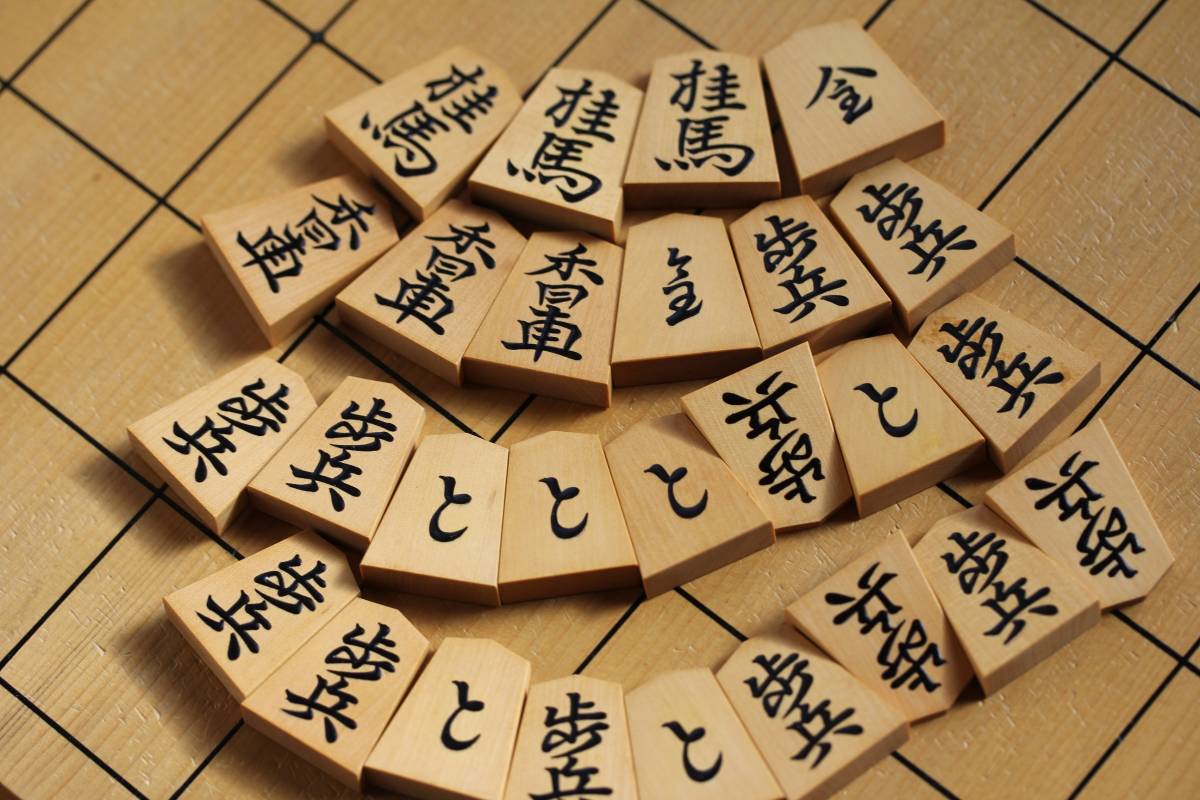 桂馬
桂馬
桂馬
全
香車
香車
香車
歩兵
歩兵
歩兵
歩兵
と
と
と
歩兵
と
歩兵
歩兵
歩兵
と
歩兵
と
歩兵
歩兵
歩兵
歩兵